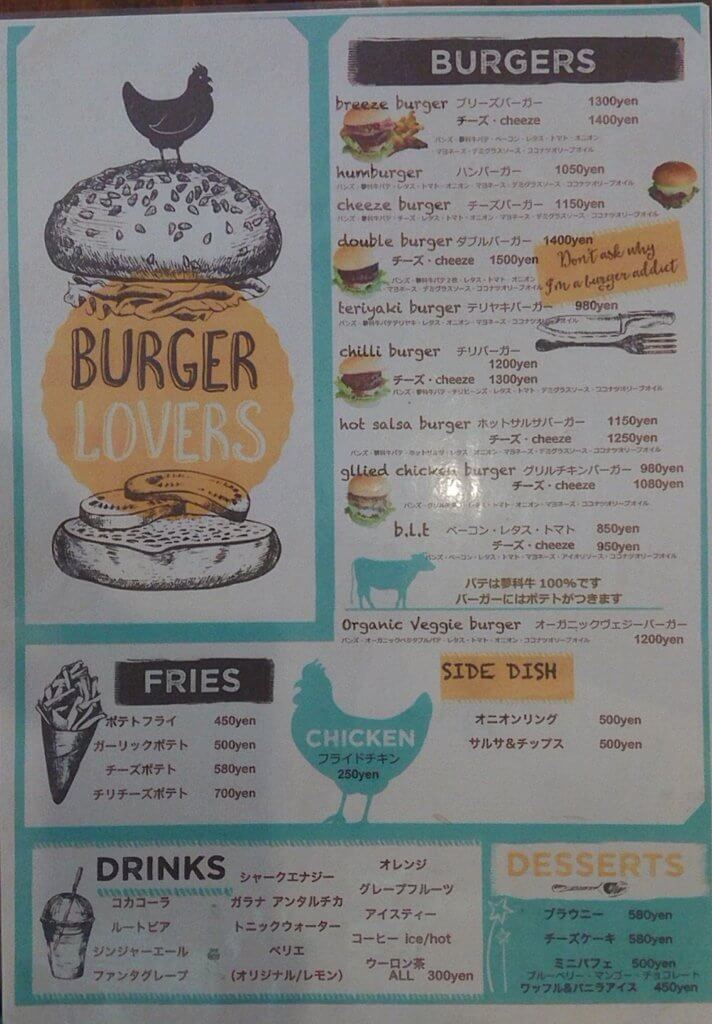 BURGER
LOVERS
BURGERS
breeze burger ブリーズバーガー 1300yen
チーズ・cheeze 1400yen
バンズ・蓼科牛パテ・ベーコン・レタス・トマト・オニオン
マヨネーズ・デミグラスソース・ココナツオリーブオイル
humburger ハンバーガー 1050yen
バンズ・蓼科牛パテ・レタス・トマト・オニオン・マヨネーズ・デミグラスソース・ココナツオリーブオイル
cheeze burger チーズバーガー 1150yen
バンズ・蓼科牛パテ・チーズ・レタス・トマト・オニオン・マヨネーズ・デミグラスソース・ココナツオリーブオイル
double burger ダブルバーガー 1400yen
チーズ・cheeze 1500yen
バンズ・蓼科牛パテ2枚・レタス・トマト・オニオン
マヨネーズ・デミグラスソース・ココナツオリーブオイル
Don't ask why
I'm a burger addict
teriyaki burger テリヤキバーガー 980yen
バンズ・蓼科牛パテテリヤキ・レタス・オニオン・マヨネーズ・ココナツオリーブオイル
chilli burger チリバーガー
1200yen
チーズ・cheeze 1300yen
バンズ・蓼科牛パテ・チリビーンズ・レタス・トマト・デミグラスソース・ココナツオリーブオイル
hot salsa burger ホットサルサバーガー 1150yen
チーズ・cheeze 1250yen
バンズ・蓼科牛パテ・ホットサルサ・レタス・オニオン・マヨネーズ・デミグラスソース・ココナツオリーブオイル
gllied chicken burger グリルチキンバーガー 980yen
チーズ・cheeze 1080yen
バンズ・グリルチキン・レタス・トマト・オニオン・マヨネーズ・ココナツオリーブオイル
b.l.t ベーコン・レタス・トマト 850yen
チーズ・cheeze 950yen
バンズ・ベーコン・レタス・トマト・マヨネーズ・アイオリソース・ココナツオリーブオイル
パテは蓼科牛 100%です
バーガーにはポテトがつきます
Organic Veggie burger オーガニックヴェジーバーガー
バンズ・オーガニックベジタブルパテ・レタス・トマト・オニオン・ココナツオリーブオイル 1200yen
FRIES
ポテトフライ 450yen
ガーリックポテト 500yen
チーズポテト 580yen
チリチーズポテト 700yen
CHICKEN
フライドチキン
250yen
SIDE DISH
オニオンリング 500yen
サルサ&チップス 500yen
DRINKS
コカコーラ
ルートビア
ジンジャーエール
ファンタグレープ
シャークエナジー
ガラナ アンタルチカ
トニックウォーター
ペリエ
(オリジナル/レモン)
オレンジ
グレープフルーツ
アイスティー
コーヒー ice/hot
ウーロン茶
ALL 300yen
DESSERTS
ブラウニー 580yen
チーズケーキ 580yen
ミニパフェ 500yen
ブルーベリー・マンゴー・チョコレート
ワッフル&バニラアイス 450yen